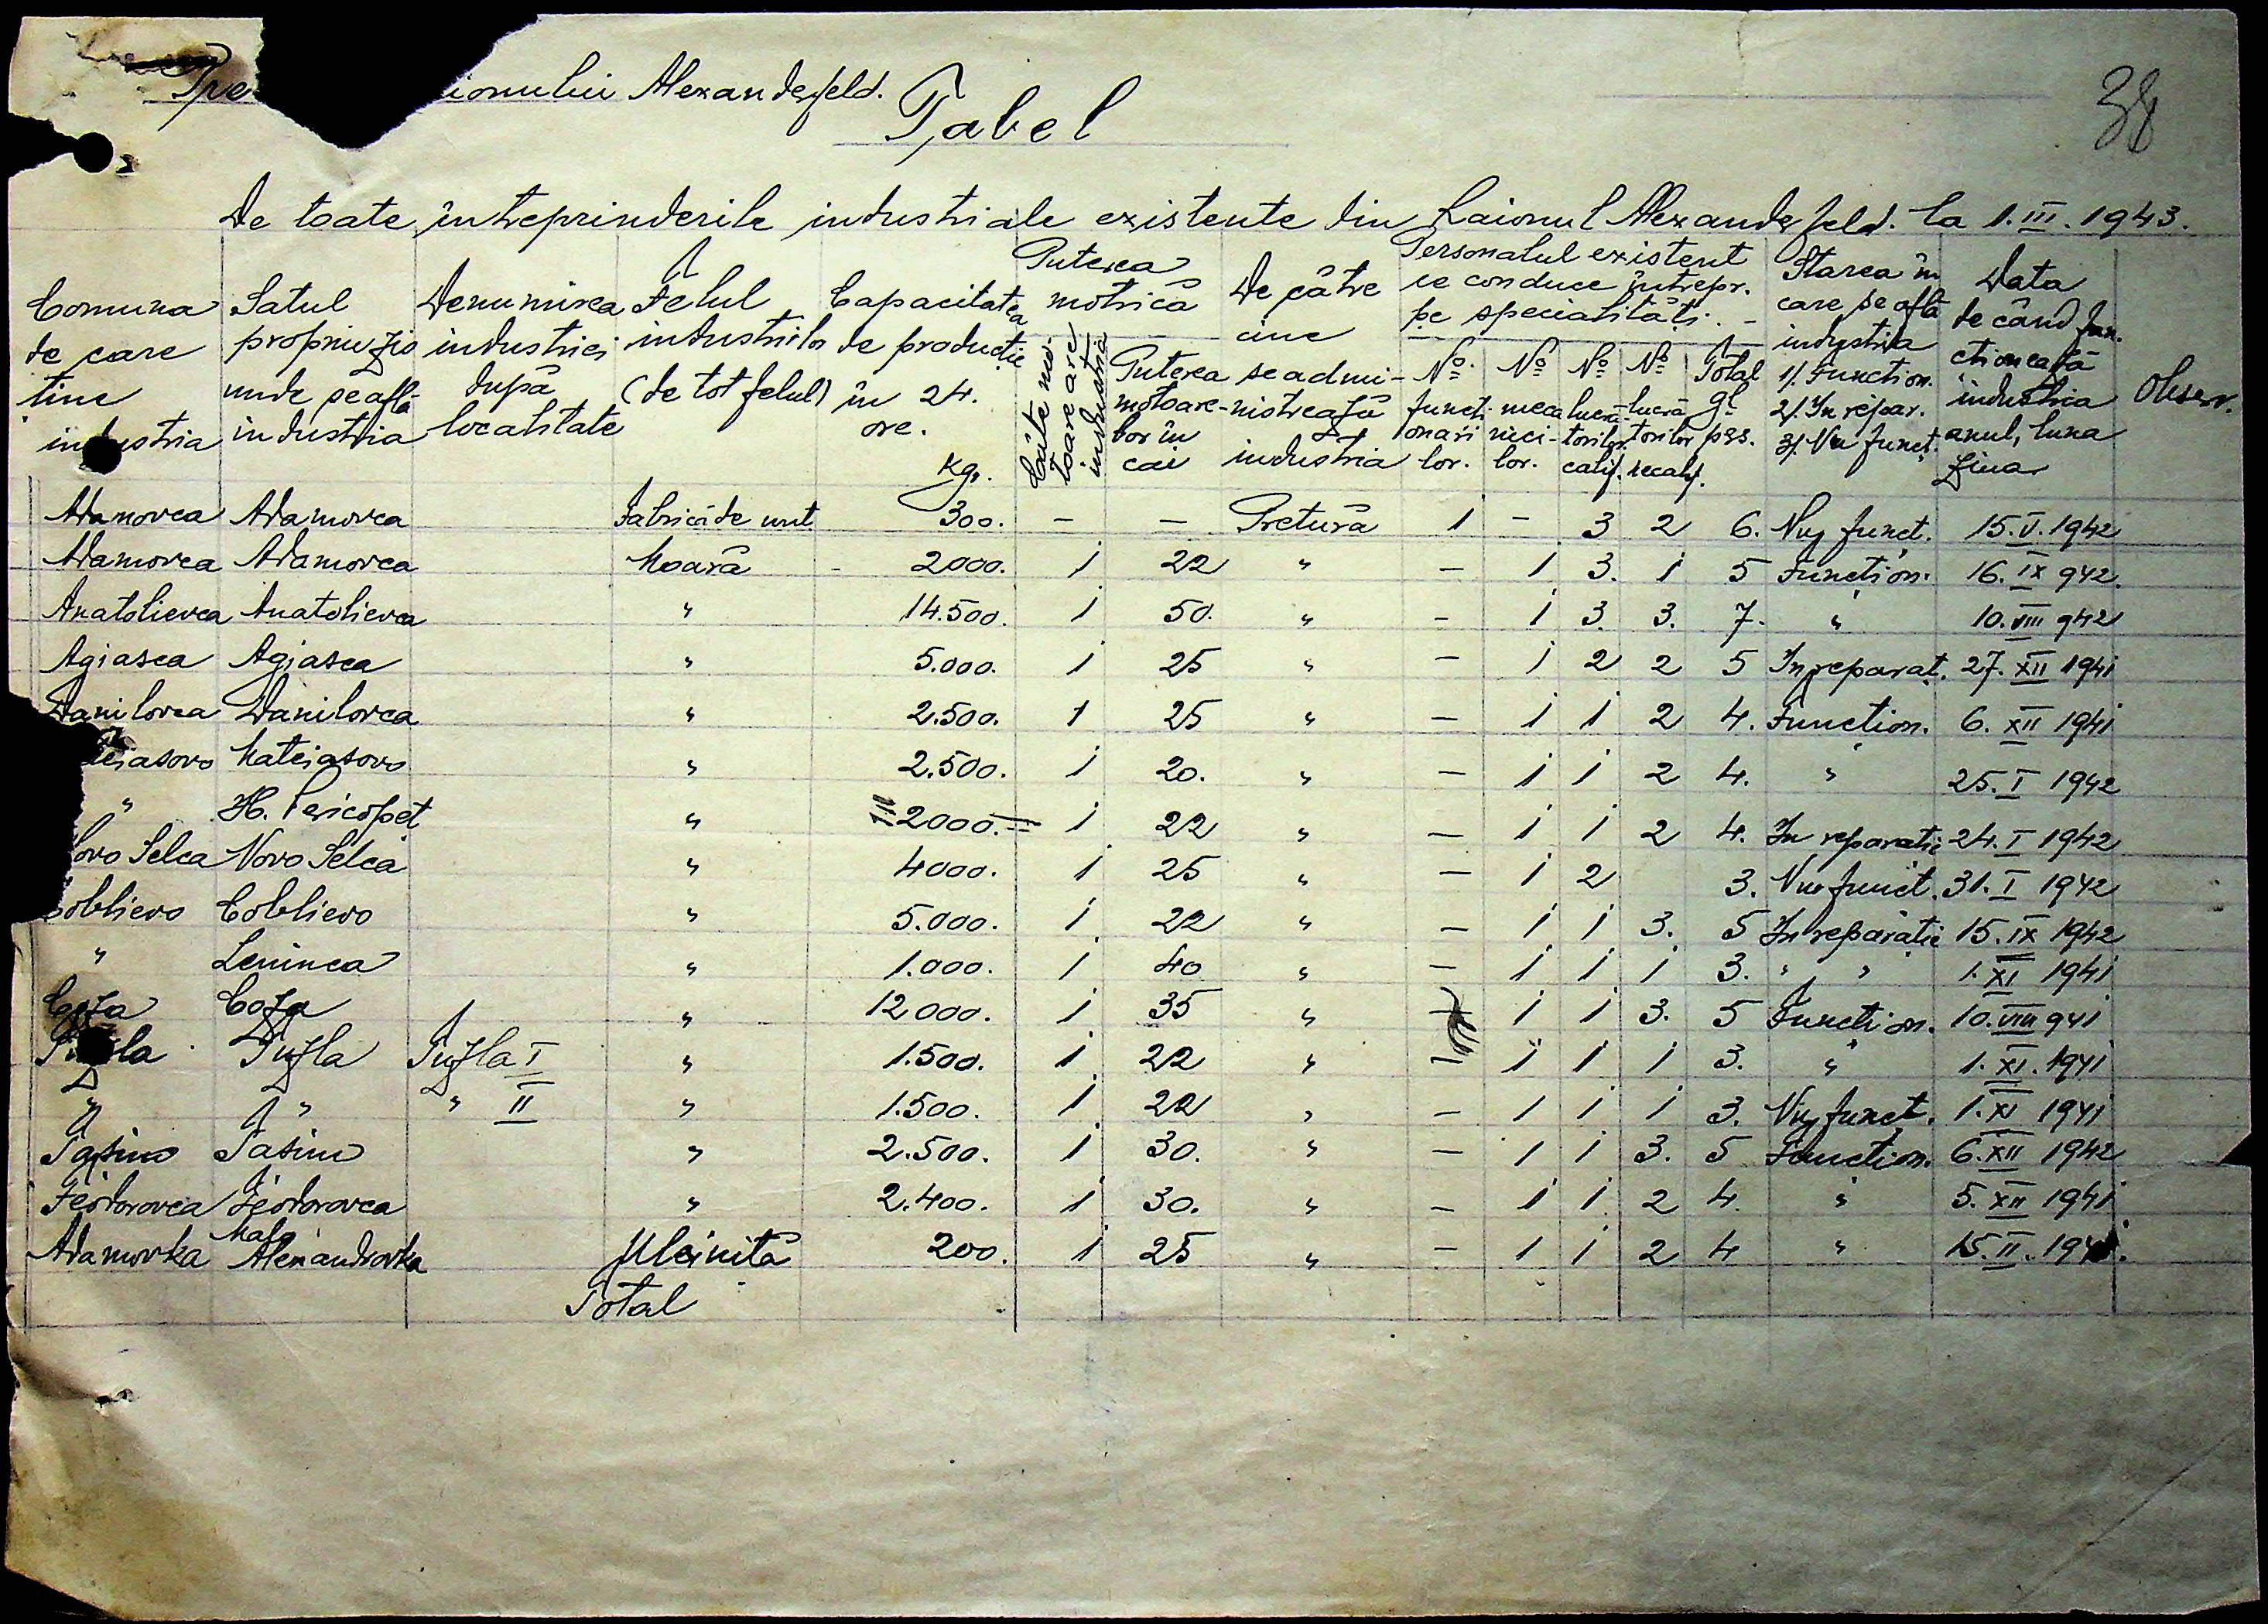 Pre ionului Alexanderfeld.
38
Tabel
De toate întreprinderile industriale existente din Raionul Alexanderfeld. la 1.III.1943.
Comuna de care tine industria | Satul propriu zis unde se află industria | Denumirea industriei după localitate | Felul industriilor (de tot felul) | Capacitatea de producție în 24. ore. Kg. | Puterea motrică | Câte motoare are industria | Puterea motoarelor în cai | De către cine se administrează industria | Personalul existent ce conduce întrepr. pe specialități. | No. funcționarilor. | No mecanicilor. | No lucrătorilor calif. | No lucrătorilor necalif. | Total gl. pers. | Starea în care se află industria 1). Function. 2). In repar. 3). Nu funct. | Data de când funcționează industria anul, luna ziua | Observ.
Adamovca Adamovca Fabrică de unt 300. - - Pretură 1 - 3 2 6. Nu funct. 15.V.1942
Adamovca Adamovca Moară - 2000. 1 22 " - 1 3. 1 5 Function. 16.IX 942.
Anatolievca Anatolievca " 14.500. 1 50. " - 1 3. 3. 7. " 10.VIII 942
Agiasca Agiasca " 5.000. 1 25 " - 1 2 2 5 In reparat. 27.XII 1941
Danilovca Danilovca " 2.500. 1 25 " - 1 1 2 4. Function. 6.XII 1941
eiasovo Mateiasovo " 2.500. 1 20. " - 1 1 2 4. " 25.I 1942
" " 2000. 1 22 " - 1 1 2 4. In reparatie 24.I 1942
ovo Selca Novo Selca " 4000. 1 25 " - 1 2 3. Nu funct. 31.I 1942
Coblievo Coblievo " 5.000. 1 22 " - 1 1 3. 5 In reparatie 15.IX 1942
" Leninca " 1.000. 1 40 " - 1 1 1 3. " " 1.XI 1941
Coza Coza " 12.000. 1 35 " - 1 1 3. 5 Function. 10.VIII 941
T la Tuzla Tuzla I " 1.500. 1 22 " - 1 1 1 3. " 1.XI.1941
" " " II " 1.500. 1 22 " - 1 1 1 3. Nu funct. 1.XI 1941
Tasino Tasino " 2.500. 1 30. " - 1 1 3. 5 Function. 6.XII 1942
Feodorovca Feodorovca " 2.400. 1 30. " - 1 1 2 4. " 5.XII 1941
Adamovka Malo Alexandrovka Uleinită 200. 1 25 " - 1 1 2 4 " 15.II.194
Total